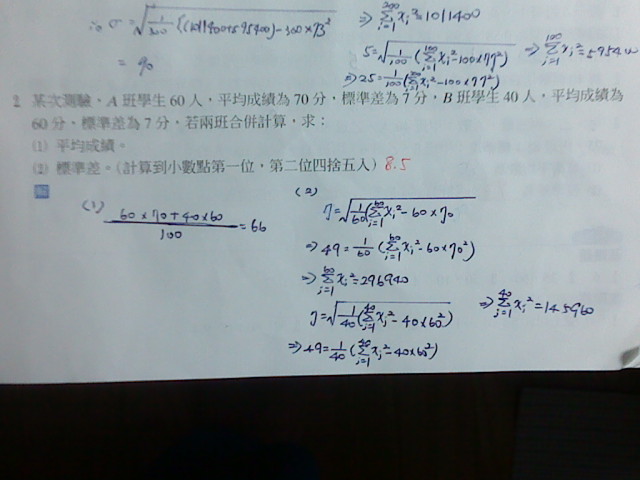 ∴ σ = √(1/300 [(1011400+595400)-300×73²
⇒ Σ(i=1→200) xi² = 1011400
= 90
5 = √(1/100 (Σ(i=1→100) xi² - 100×77²)
⇒ Σ(i=1→100) xi² = 5954
⇒ 25 = 1/100 (Σ(i=1→100) xi² - 100×77²)
2 某次測驗，A 班學生 60 人，平均成績為 70 分，標準差為 7 分，B 班學生 40 人，平均成績為
60 分，標準差為 7 分，若兩班合併計算，求：
(1) 平均成績。
(2) 標準差。(計算到小數點第一位，第二位四捨五入) 8.5
解
(1)
(60×70+40×60)/100 = 66
(2)
7 = √(1/60 (Σ(i=1→60) xi² - 60×70
⇒ 49 = 1/60 (Σ(i=1→60) xi² - 60×70²)
⇒ Σ(i=1→60) xi² = 296940
7 = √(1/40 (Σ(i=1→40) xi² - 40×60²)
⇒ Σ(i=1→40) xi² = 145960
⇒ 49 = 1/40 (Σ(i=1→40) xi² - 40×60²)